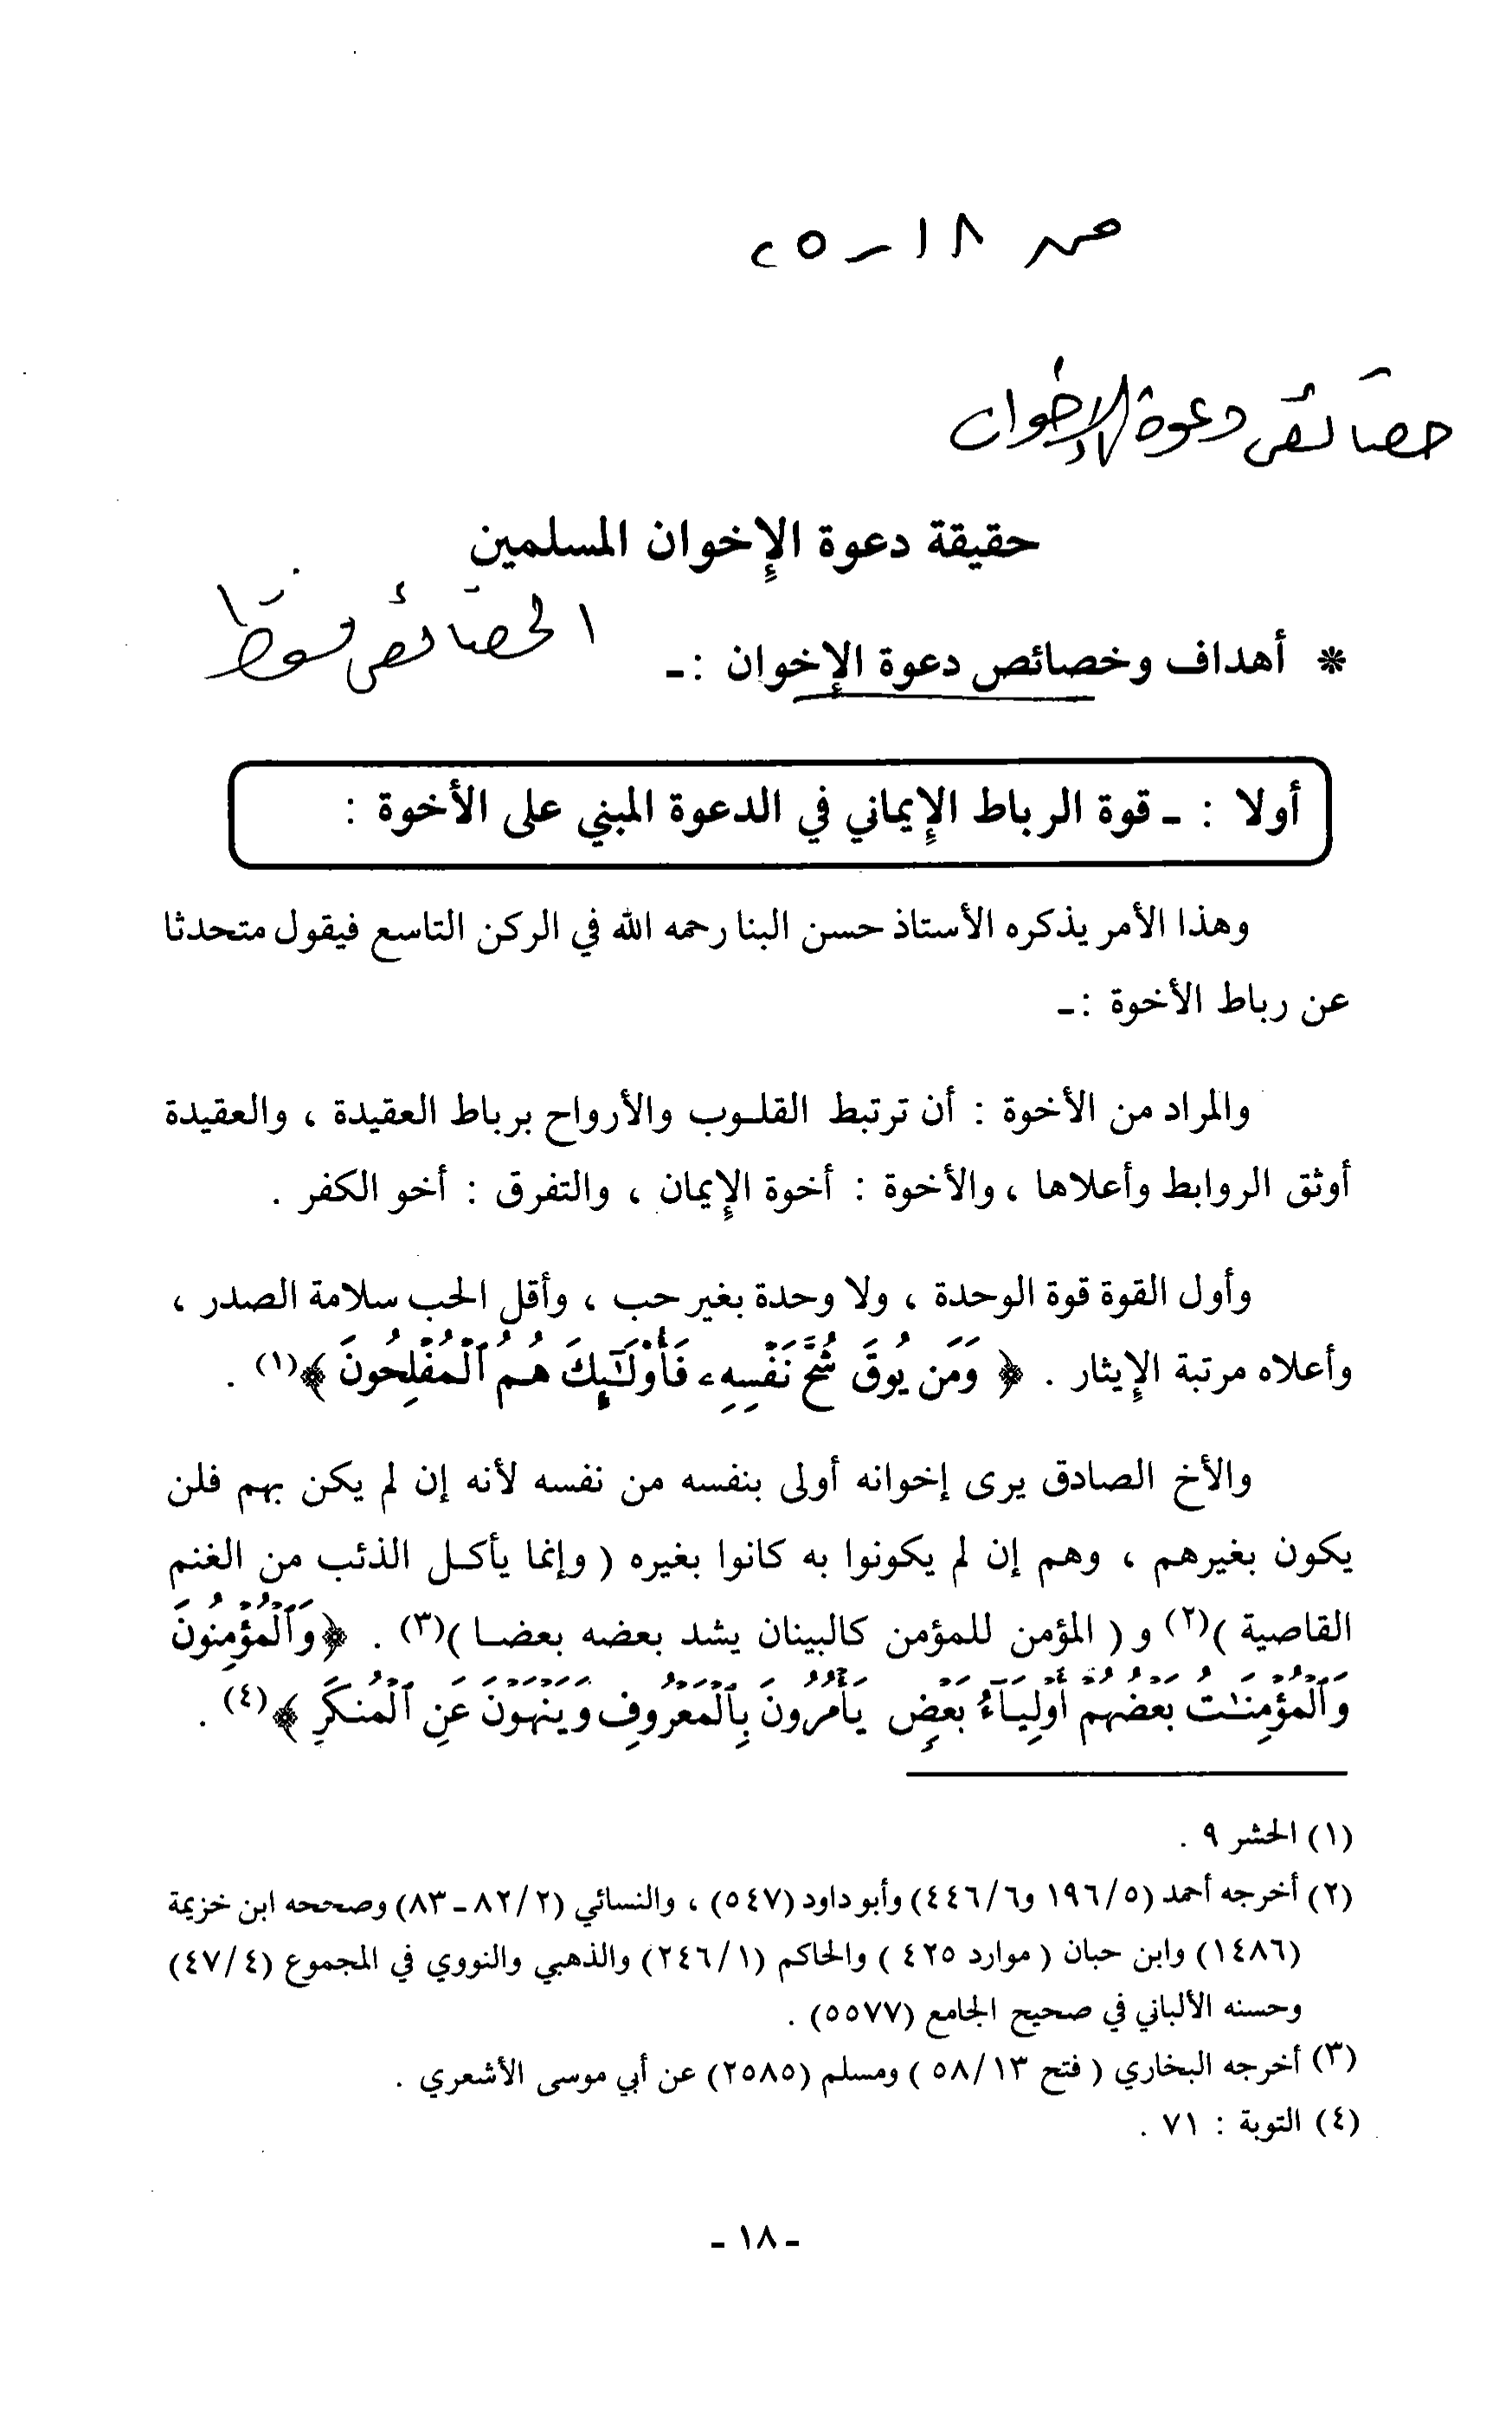 ص ١٨ - ٢٥
خصائص دعوة الإخوان
حقيقة دعوة الإخوان المسلمين
الخصائص فقط
* أهداف وخصائص دعوة الإخوان :ـ
أولا : ـ قوة الرباط الإيماني في الدعوة المبني على الأخوة :
وهذا الأمر يذكره الأستاذ حسن البنا رحمه الله في الركن التاسع فيقول متحدثا
عن رباط الأخوة :ـ
والمراد من الأخوة : أن ترتبط القلـوب والأرواح برباط العقيدة ، والعقيدة
أوثق الروابط وأعلاها ، والأخوة : أخوة الإيمان ، والتفرق : أخو الكفر .
وأول القوة قوة الوحدة ، ولا وحدة بغير حب ، وأقل الحب سلامة الصدر ،
وأعلاه مرتبة الإيثار . ﴿ وَمَن يُوقَ شُحَّ نَفْسِهِۦ فَأُوْلَـٰٓئِكَ هُمُ ٱلْمُفْلِحُونَ ﴾(١) .
والأخ الصادق يرى إخوانه أولى بنفسه من نفسه لأنه إن لم يكن بهم فلن
يكون بغيرهم ، وهم إن لم يكونوا به كانوا بغيره ( وإنما يأكـل الذئب من الغنم
القاصية )(٢) و ( المؤمن للمؤمن كالبينان يشد بعضه بعضـا )(٣) . ﴿ وَٱلْمُؤْمِنُونَ
وَٱلْمُؤْمِنَـٰتُ بَعْضُهُمْ أَوْلِيَآءُ بَعْضٍ يَأْمُرُونَ بِٱلْمَعْرُوفِ وَيَنْهَوْنَ عَنِ ٱلْمُنكَرِ ﴾(٤) .
(١) الحشر ٩ .
(٢) أخرجه أحمد (٥/ ١٩٦ و٦/ ٤٤٦) وأبو داود (٥٤٧) ، والنسائي (٢/ ٨٢ ـ ٨٣) وصححه ابن خزيمة
(١٤٨٦) وابن حبان ( موارد ٤٢٥ ) والحاكم (١/ ٢٤٦) والذهبي والنووي في المجموع (٤/ ٤٧)
وحسنه الألباني في صحيح الجامع (٥٥٧٧) .
(٣) أخرجه البخاري ( فتح ١٣/ ٥٨ ) ومسلم (٢٥٨٥) عن أبي موسى الأشعري .
(٤) التوبة : ٧١ .
ـ ١٨ ـ